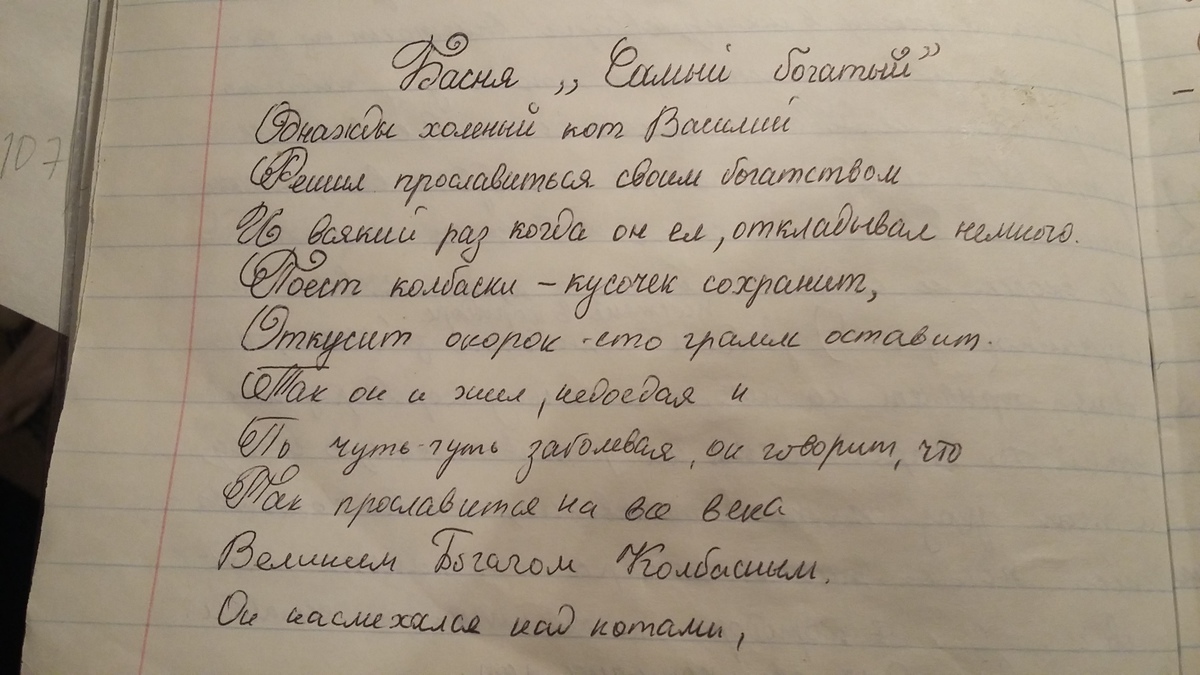 Басня „Самый богатый”
Однажды холеный кот Василий
Решил прославиться своим богатством
И всякий раз когда он ел, откладывал немного.
Поест колбасы – кусочек сохранит,
Откусит окорок - сто грамм оставит.
Так он и жил, недоедая и
По чуть-чуть заболевая, он говорит, что
Так прославится на все века
Великим Богачом Колбасным.
Он насмехался над котами,
107